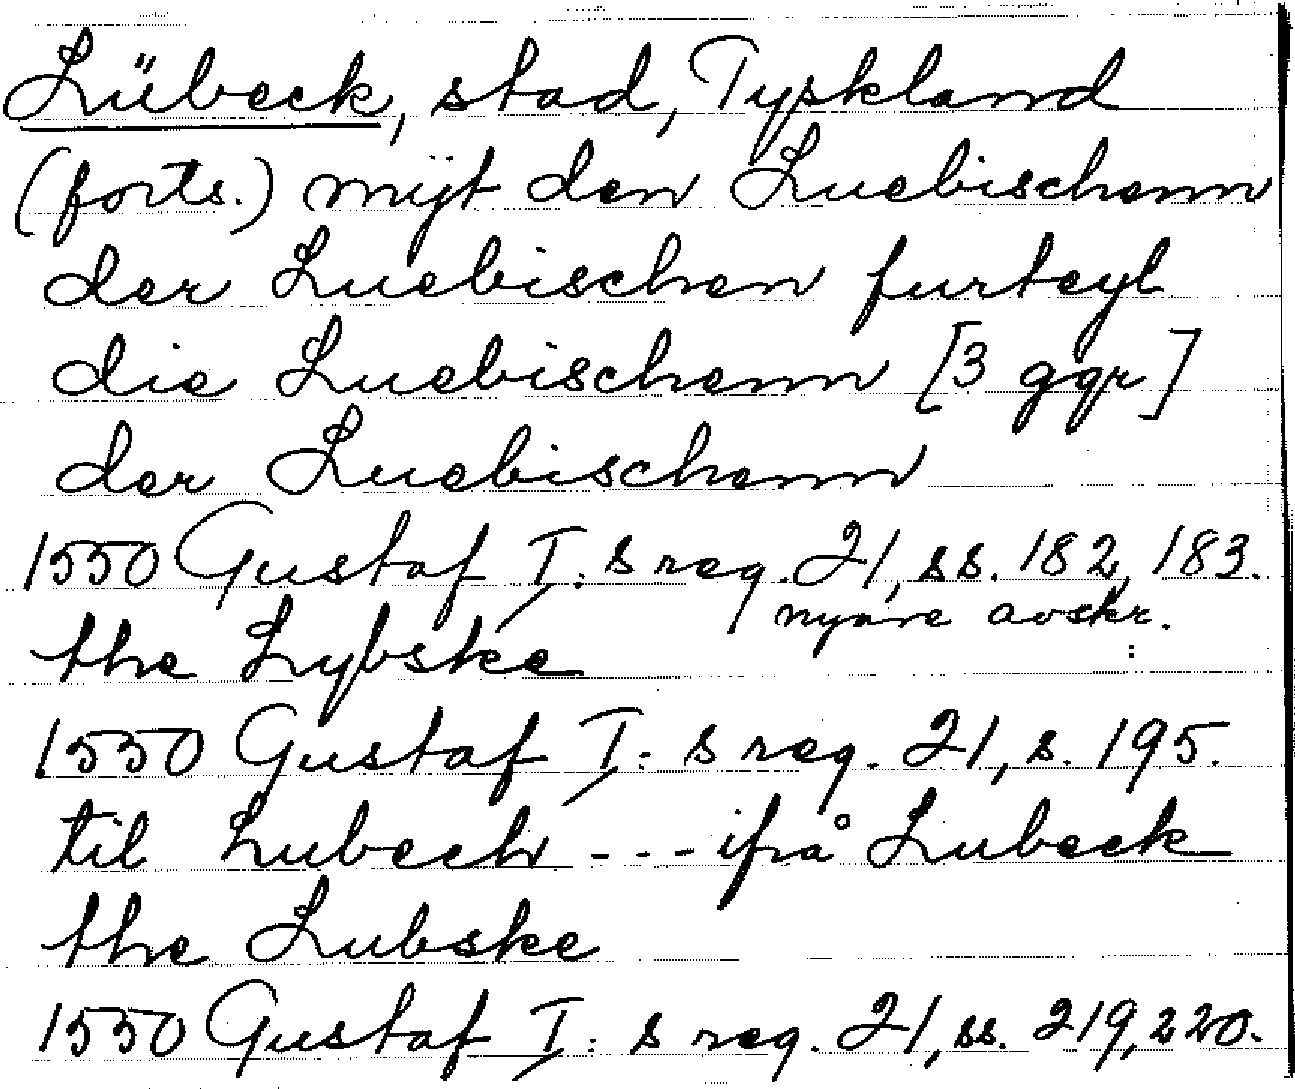 Lübeck, stad, Tyskland
(forts.) mÿt den Luebischenn
der Luebischen furteyl
die Luebischenn [3 ggr]
der Luebischenn
1550 Gustaf I: s reg. 21, ss. 182, 183.
nyare avskr.
the Lybske
1550 Gustaf I: s reg. 21, s. 195.
til Lubech - - - ifrå Lubeck
the Lubske
1550 Gustaf I: s reg. 21, ss. 219, 220.